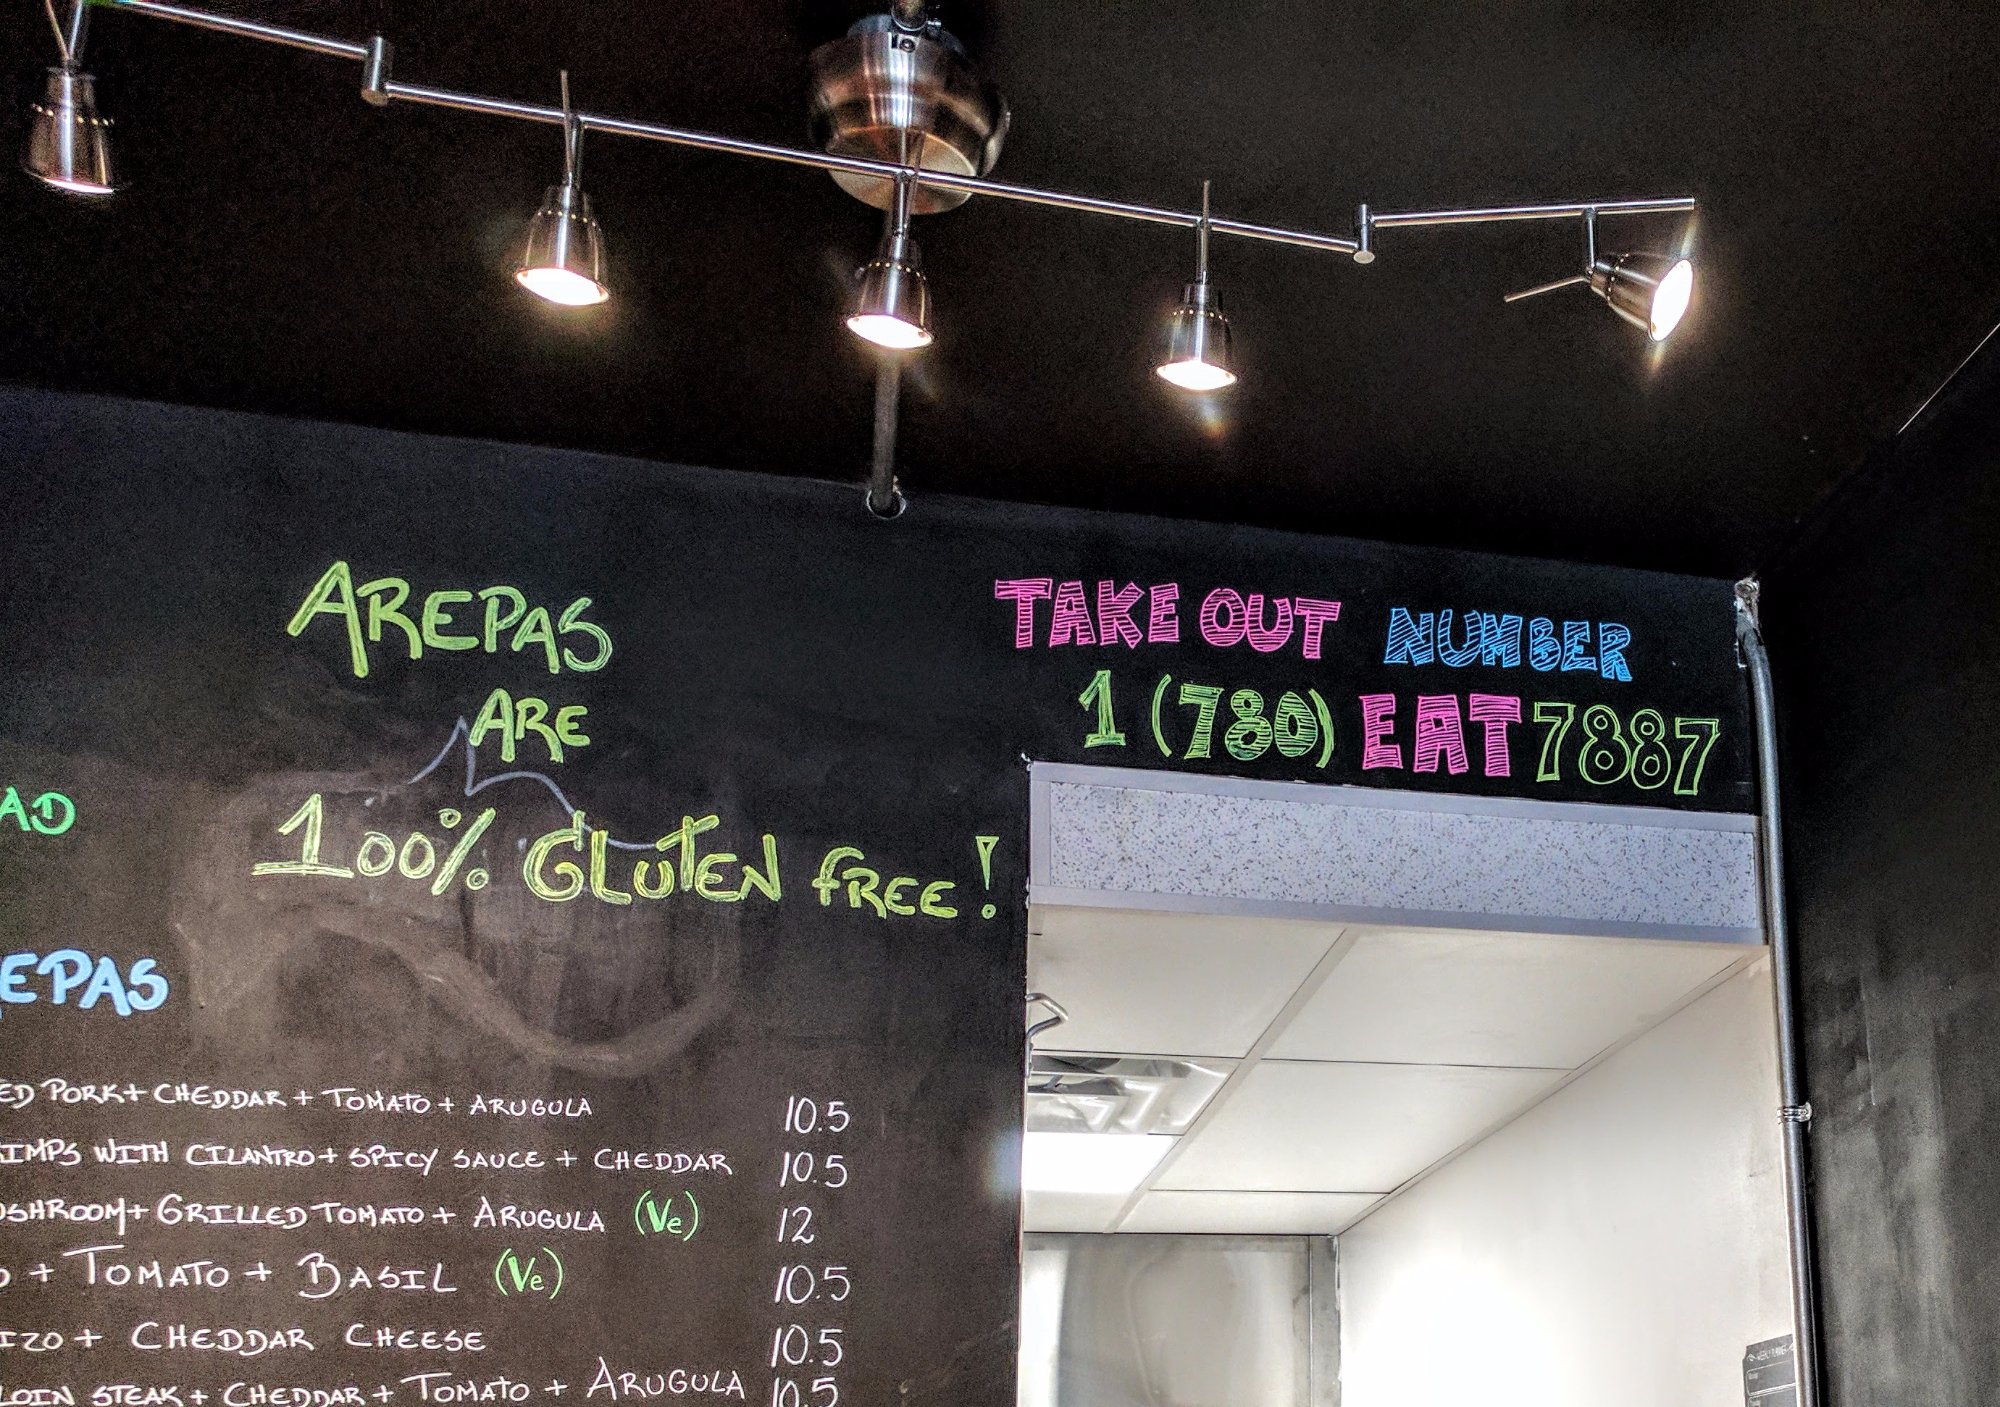 AREPAS
ARE
100% GLUTEN FREE!
TAKE OUT NUMBER
1 (780) EAT 7887
AD
EPAS
ED PORK + CHEDDAR + TOMATO + ARUGULA 10.5
IMPS WITH CILANTRO + SPICY SAUCE + CHEDDAR 10.5
SHROOM + GRILLED TOMATO + ARUGULA (Ve) 12
+ TOMATO + BASIL (Ve) 10.5
IZO + CHEDDAR CHEESE 10.5
LOIN STEAK + CHEDDAR + TOMATO + ARUGULA 10.5